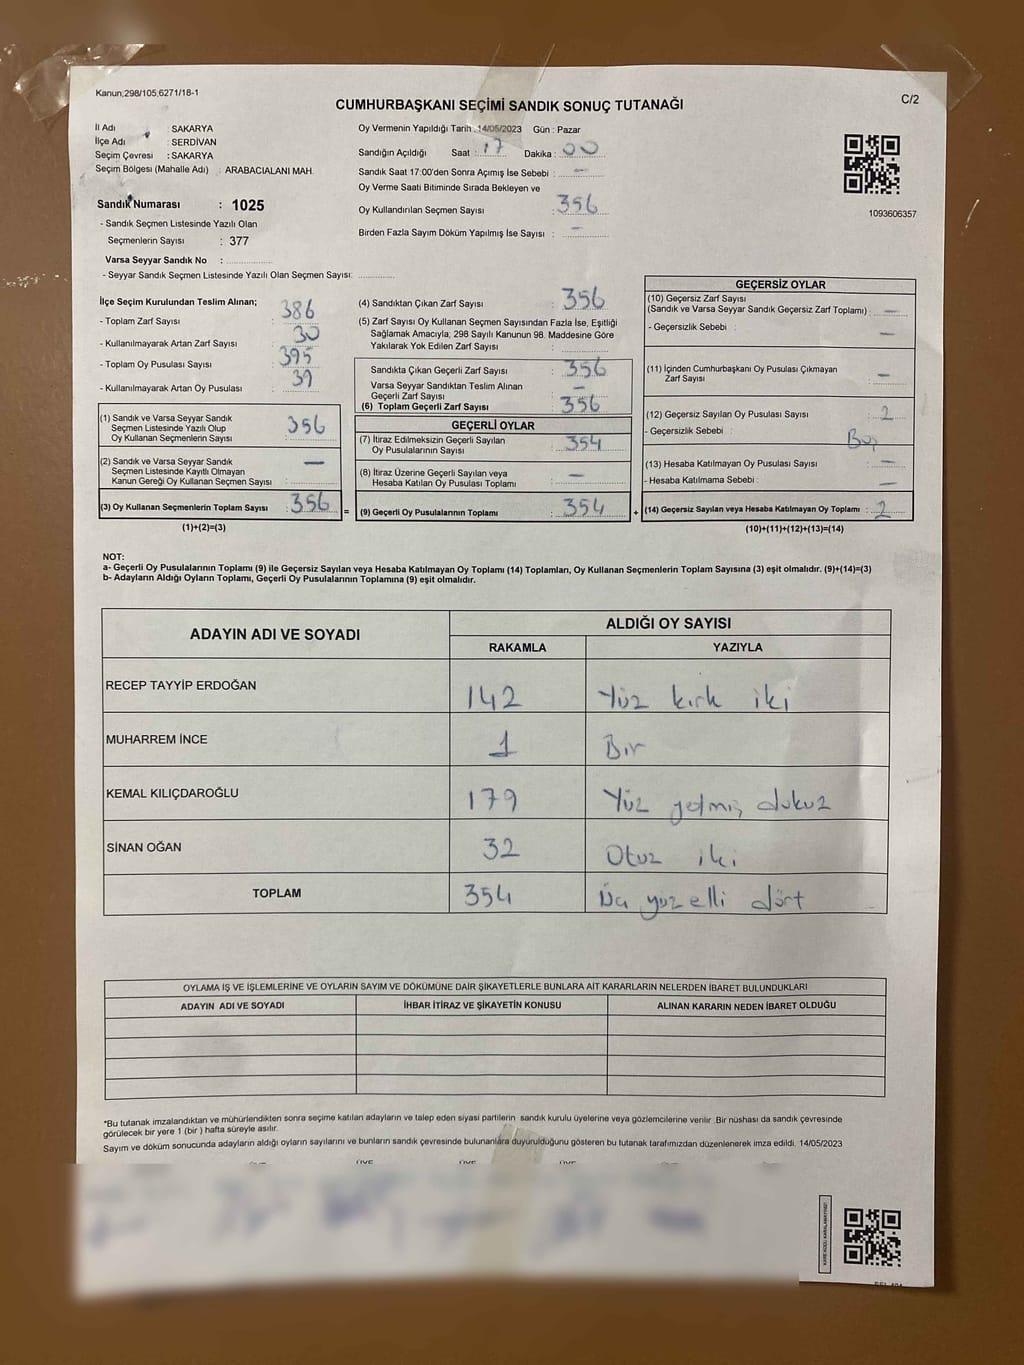 Kanun;298/105;6271/18-1
CUMHURBAŞKANI SEÇİMİ SANDIK SONUÇ TUTANAĞI
C/2
İl Adı : SAKARYA
İlçe Adı : SERDİVAN
Seçim Çevresi : SAKARYA
Seçim Bölgesi (Mahalle Adı) : ARABACIALANI MAH.
Sandık Numarası : 1025
- Sandık Seçmen Listesinde Yazılı Olan
Seçmenlerin Sayısı : 377
Varsa Seyyar Sandık No :
- Seyyar Sandık Seçmen Listesinde Yazılı Olan Seçmen Sayısı:
Oy Vermenin Yapıldığı Tarih : 14/05/2023 Gün : Pazar
Sandığın Açıldığı Saat : 17 Dakika : 00
Sandık Saat 17:00'den Sonra Açımış İse Sebebi : -
Oy Verme Saati Bitiminde Sırada Bekleyen ve
Oy Kullandırılan Seçmen Sayısı : 356
Birden Fazla Sayım Döküm Yapılmış İse Sayısı : -
1093606357
İlçe Seçim Kurulundan Teslim Alınan;
- Toplam Zarf Sayısı : 386
- Kullanılmayarak Artan Zarf Sayısı : 30
- Toplam Oy Pusulası Sayısı : 395
- Kullanılmayarak Artan Oy Pusulası : 39
(1) Sandık ve Varsa Seyyar Sandık
Seçmen Listesinde Yazılı Olup
Oy Kullanan Seçmenlerin Sayısı : 356
(2) Sandık ve Varsa Seyyar Sandık
Seçmen Listesinde Kayıtlı Olmayan
Kanun Gereği Oy Kullanan Seçmen Sayısı : -
(3) Oy Kullanan Seçmenlerin Toplam Sayısı : 356 =
(1)+(2)=(3)
(4) Sandıktan Çıkan Zarf Sayısı : 356
(5) Zarf Sayısı Oy Kullanan Seçmen Sayısından Fazla İse, Eşitliği
Sağlamak Amacıyla; 298 Sayılı Kanunun 98. Maddesine Göre
Yakılarak Yok Edilen Zarf Sayısı :
Sandıkta Çıkan Geçerli Zarf Sayısı : 356
Varsa Seyyar Sandıktan Teslim Alınan
Geçerli Zarf Sayısı : -
(6) Toplam Geçerli Zarf Sayısı : 356
GEÇERLİ OYLAR
(7) İtiraz Edilmeksizin Geçerli Sayılan
Oy Pusulalarının Sayısı : 354
(8) İtiraz Üzerine Geçerli Sayılan veya
Hesaba Katılan Oy Pusulası Toplamı : -
(9) Geçerli Oy Pusulalarının Toplamı : 354 +
GEÇERSİZ OYLAR
(10) Geçersiz Zarf Sayısı
(Sandık ve Varsa Seyyar Sandık Geçersiz Zarf Toplamı) : -
- Geçersizlik Sebebi : -
(11) İçinden Cumhurbaşkanı Oy Pusulası Çıkmayan
Zarf Sayısı : -
(12) Geçersiz Sayılan Oy Pusulası Sayısı : 2
- Geçersizlik Sebebi : Boş
(13) Hesaba Katılmayan Oy Pusulası Sayısı : -
- Hesaba Katılmama Sebebi : -
(14) Geçersiz Sayılan veya Hesaba Katılmayan Oy Toplamı : 2
(10)+(11)+(12)+(13)=(14)
NOT:
a- Geçerli Oy Pusulalarının Toplamı (9) ile Geçersiz Sayılan veya Hesaba Katılmayan Oy Toplamı (14) Toplamları, Oy Kullanan Seçmenlerin Toplam Sayısına (3) eşit olmalıdır. (9)+(14)=(3)
b- Adayların Aldığı Oyların Toplamı, Geçerli Oy Pusulalarının Toplamına (9) eşit olmalıdır.
ADAYIN ADI VE SOYADI
ALDIĞI OY SAYISI
RAKAMLA YAZIYLA
RECEP TAYYİP ERDOĞAN 142 Yüz kırk iki
MUHARREM İNCE 1 Bir
KEMAL KILIÇDAROĞLU 179 Yüz yetmiş dokuz
SİNAN OĞAN 32 Otuz iki
TOPLAM 354 Üç yüz elli dört
OYLAMA İŞ VE İŞLEMLERİNE VE OYLARIN SAYIM VE DÖKÜMÜNE DAİR ŞİKAYETLERLE BUNLARA AİT KARARLARIN NELERDEN İBARET BULUNDUKLARI
ADAYIN ADI VE SOYADI İHBAR İTİRAZ VE ŞİKAYETİN KONUSU ALINAN KARARIN NEDEN İBARET OLDUĞU
*Bu tutanak imzalandıktan ve mühürlendikten sonra seçime katılan adayların ve talep eden siyasi partilerin sandık kurulu üyelerine veya gözlemcilerine verilir. Bir nüshası da sandık çevresinde
görülecek bir yere 1 (bir ) hafta süreyle asılır.
Sayım ve döküm sonucunda adayların aldığı oyların sayılarını ve bunların sandık çevresinde bulunanlara duyurulduğunu gösteren bu tutanak tarafımızdan düzenlenerek imza edildi. 14/05/2023